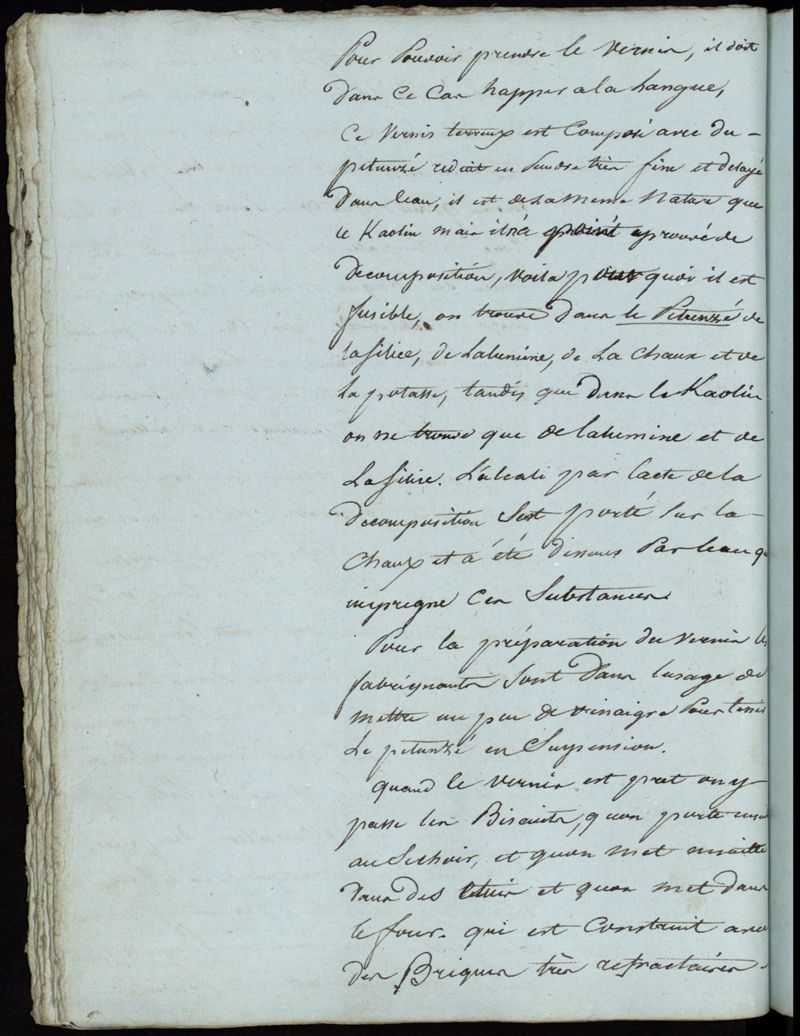 Pour Pouvoir prendre le vernis, il doit
dans ce cas happer a la langue,
Ce vernis terreux est Composé avec du -
petunzé reduit en Poudre très fine et delayé
dans l'eau, il est de la meme Nature que
le Kaolin mais il n'a point eprouvé de
décomposition, voila pourquoi il est
fusible, on trouve dans le Petunzé de
la silice, de l'alumine, de La Chaux et de
La potasse, tandis que dans le Kaolin
on ne trouve que de l'alumine et de
La silice. L'alcali par l'acte de la
decomposition s'est porté sur la -
Chaux et a été dissous Par l'eau q
impregne Ces Substances.
Pour la préparation du vernis les
fabriquants sont dans l'usage de
mettre un peu de vinaigre Pour tenir
Le petunzé en Suspension.
quand le vernis est pret on y
passe les Biscuits, qu'on porte
au Sechoir, et qu'on met ensuitte
dans des étuis et qu'on met dans
le four. qui est Construit avec
des Briques très refractaires.